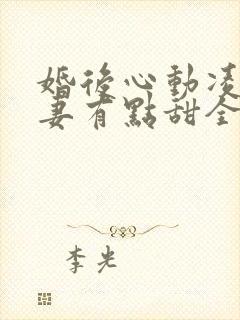 婚後心動凌
妻有點甜全
李光